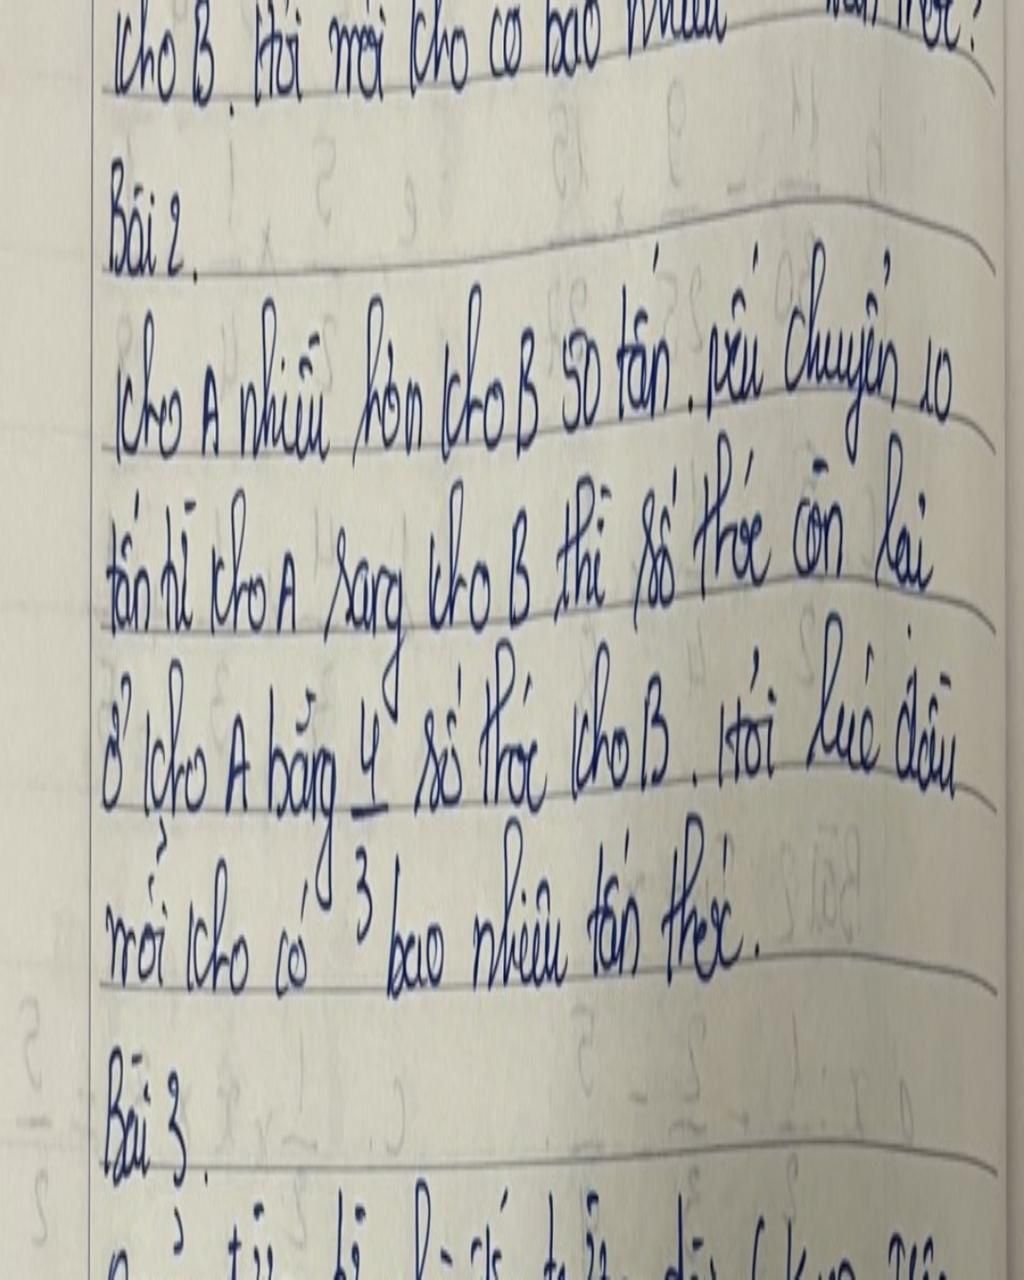 kho B. Hỏi mỗi kho có bao nhiêu
Bài 2.
Kho A nhiều hơn kho B 50 tấn. nếu chuyển 10
tấn từ kho A sang kho B thì số thóc còn lại
ở kho A bằng 4/3 số thóc kho B. Hỏi lúc đầu
mỗi kho có bao nhiêu tấn thóc.
Bài 3.